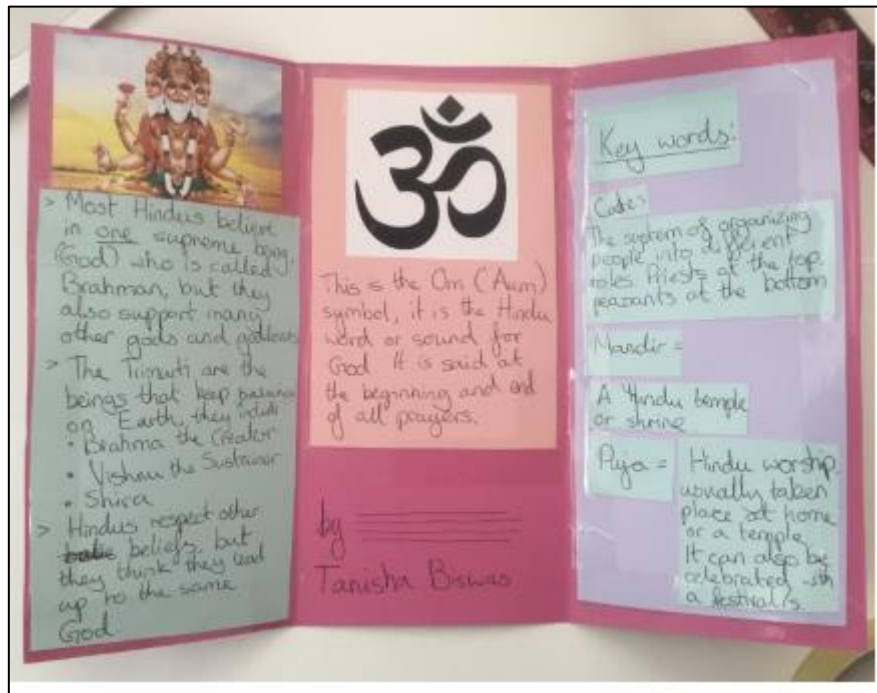 > Most Hindus believe
in one supreme being,
(God) who is called
Brahman, but they
also support many
other gods and goddesses
> The Trimurti are the
beings that keep balance
on Earth, they include
• Brahma the Creator
• Vishnu the Sustainer
• Shiva
> Hindus respect other
beliefs, but
they think they lead
up to the same
God.
ॐ
This is the Om (Aum)
symbol, it is the Hindu
word or sound for
God It is said at
the beginning and end
of all prayers.
by
Tanisha Biswas
Key words:
Caste=
The system of organizing
people into different
roles. Priests at the top.
peasants at the bottom
Mandir =
A Hindu temple
or shrine
Puja =
Hindu worship,
usually taken
place at home
or a temple.
It can also be
celebrated with
a festivals.